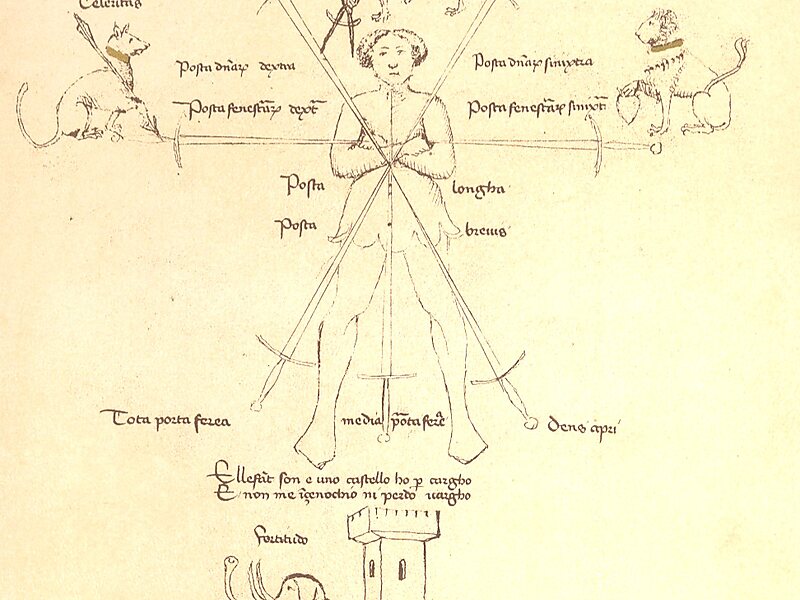 Celeritas
Posta dñaȝ dextra
Posta dñaȝ sinixtra
Posta fenestaȝ dext̄
Posta fenestaȝ sinixt̄
Posta longha
Posta breuis
Tota porta ferea
media porta
Dens apri
Ellefãt son e uno castello ho p cargho
E non me ĩgenochio ni perdo uargho
fortitudo